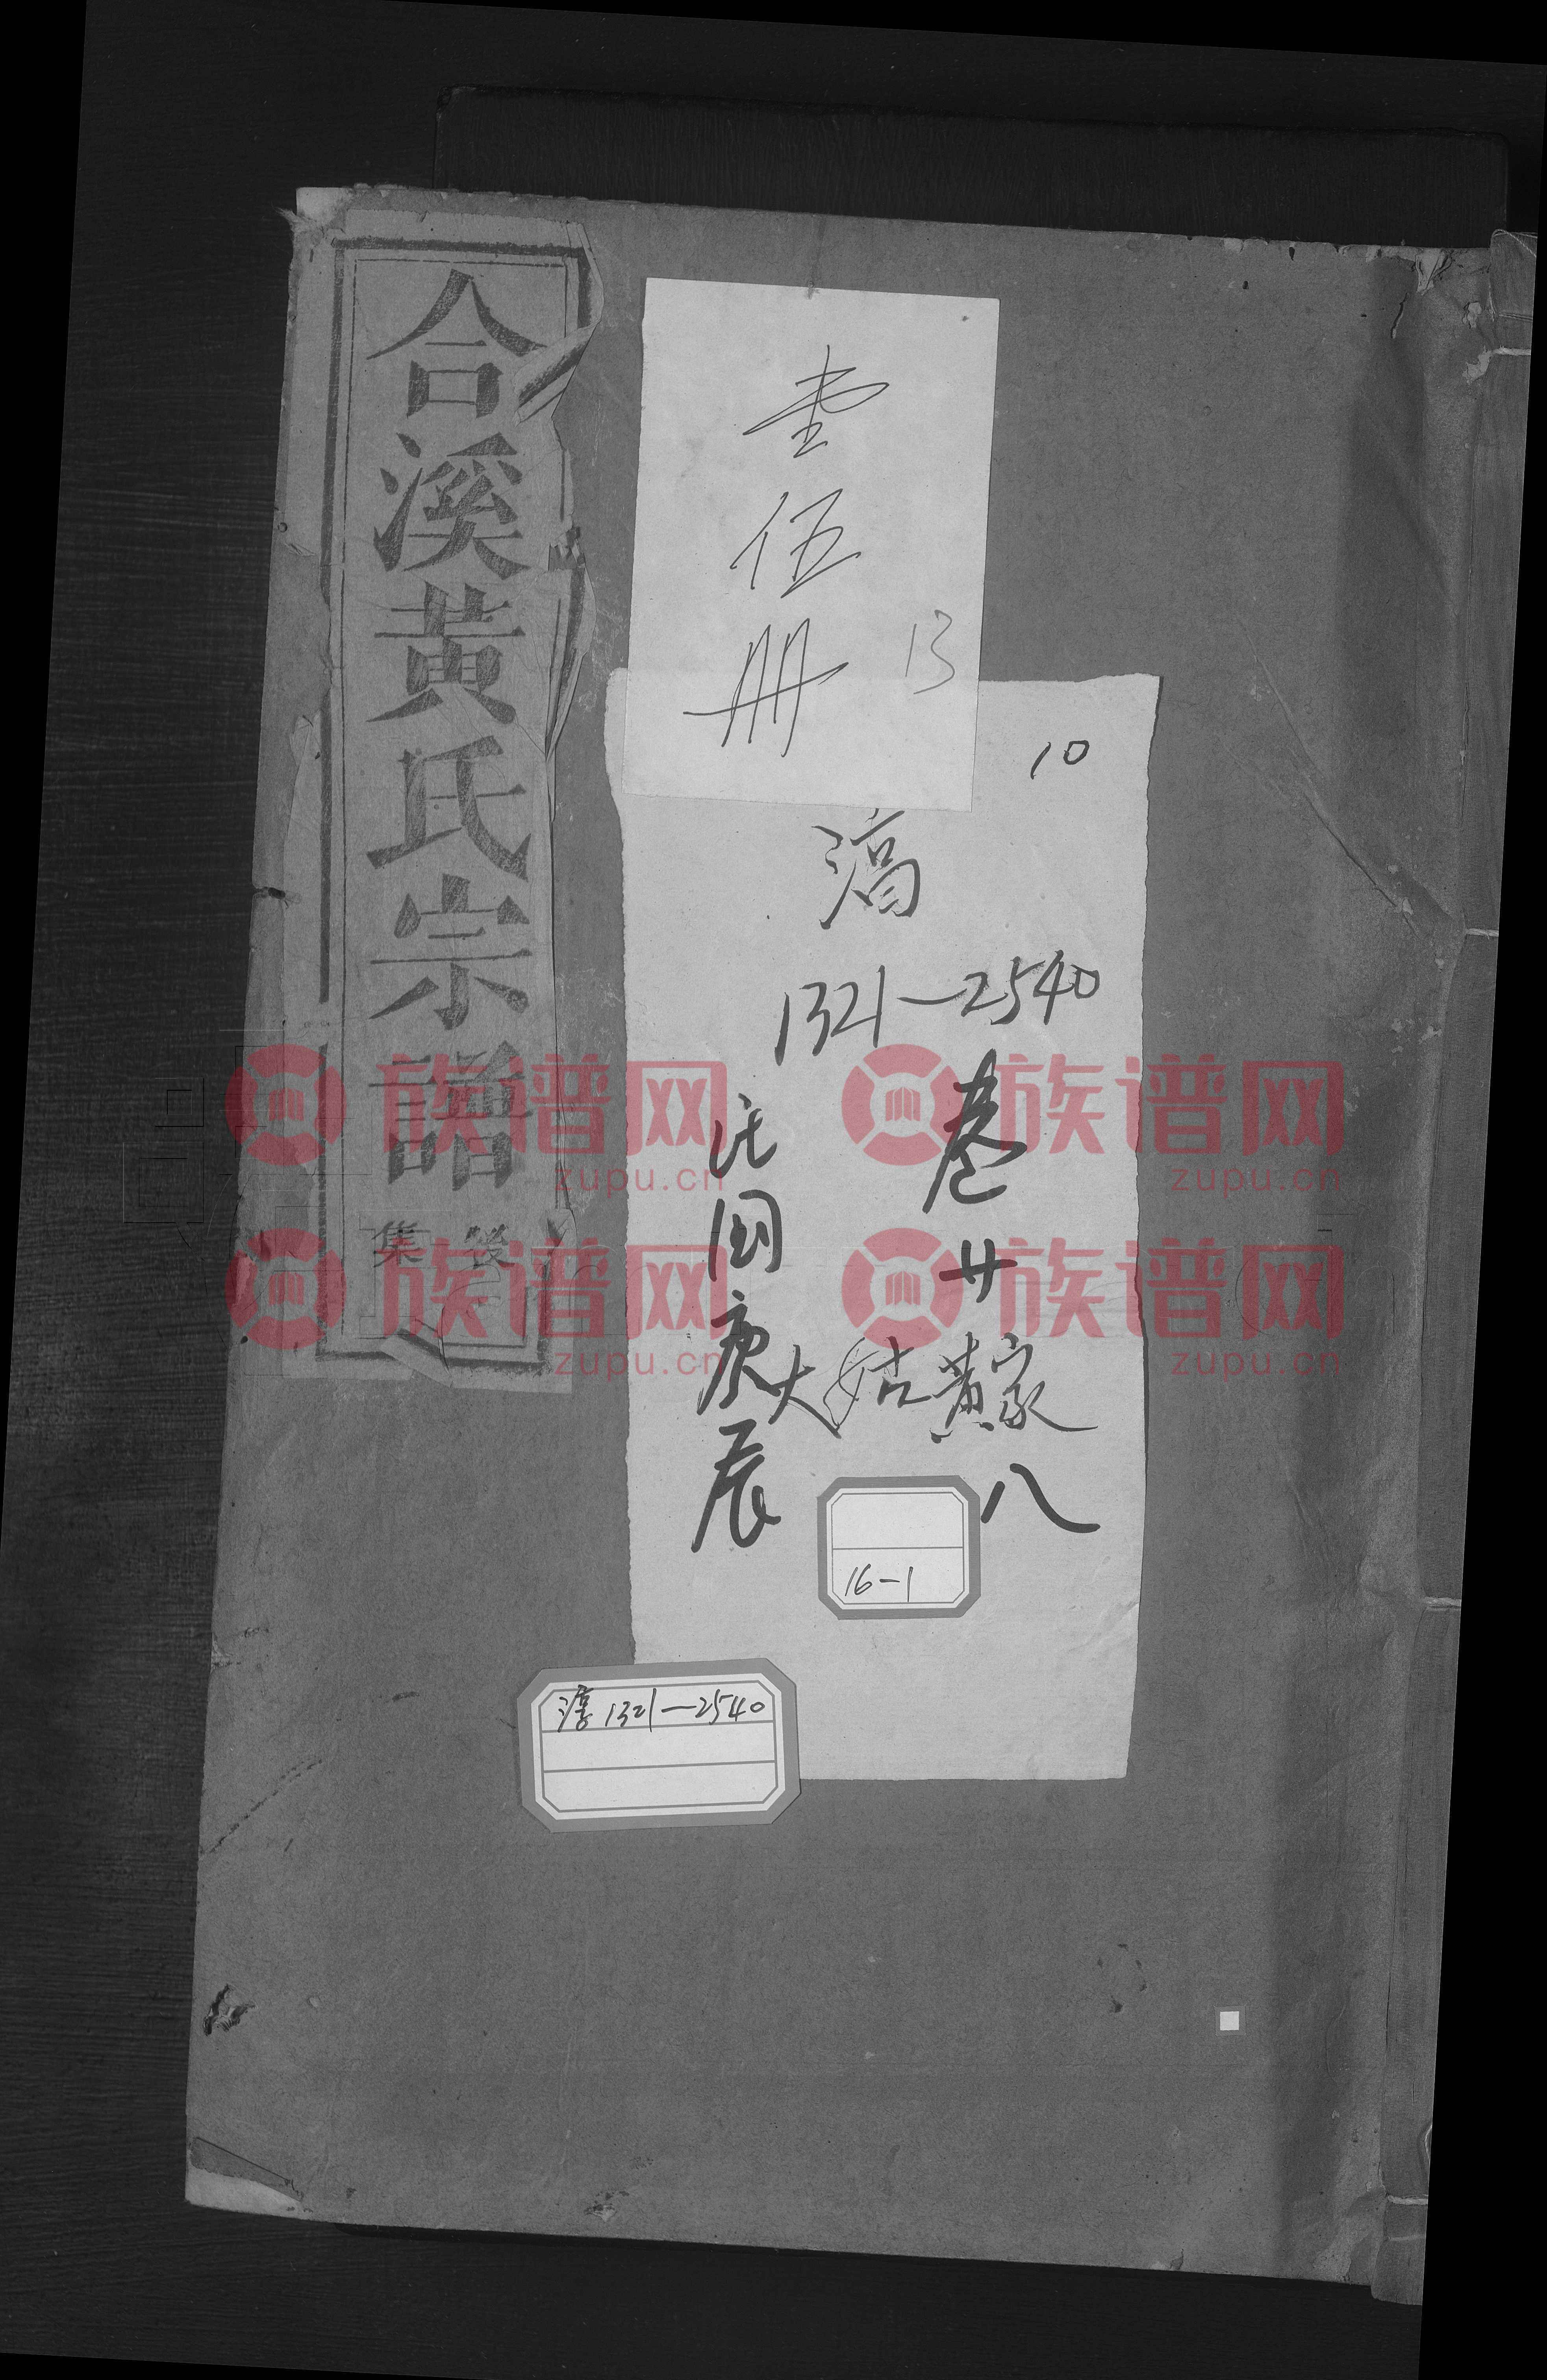 合溪黃氏宗譜
後集
壹伍册
13
10
1321—2540
卷廿八
大姑黄家
民国庚辰
16-1
淳1321—2540
族谱网
zupu.cn
族谱网
zupu.cn
族谱网
zupu.cn
族谱网
zupu.cn